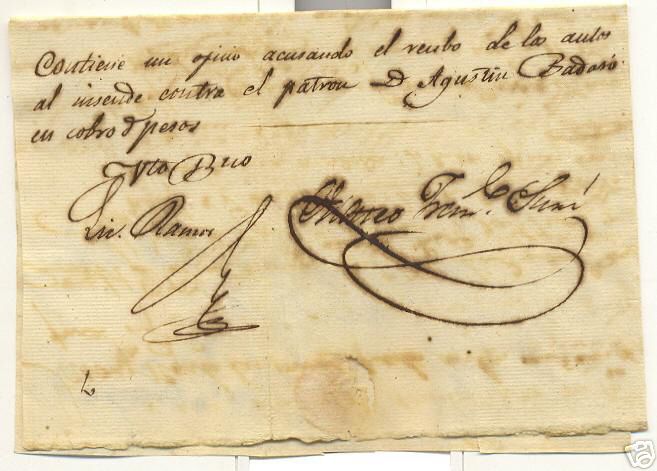 Contiene un oficio acusando el recibo de los autos
al insende contra el patron D Agustin Badaró
en cobro d pesos
Vto Bno
Lic. Ramos
Mateo